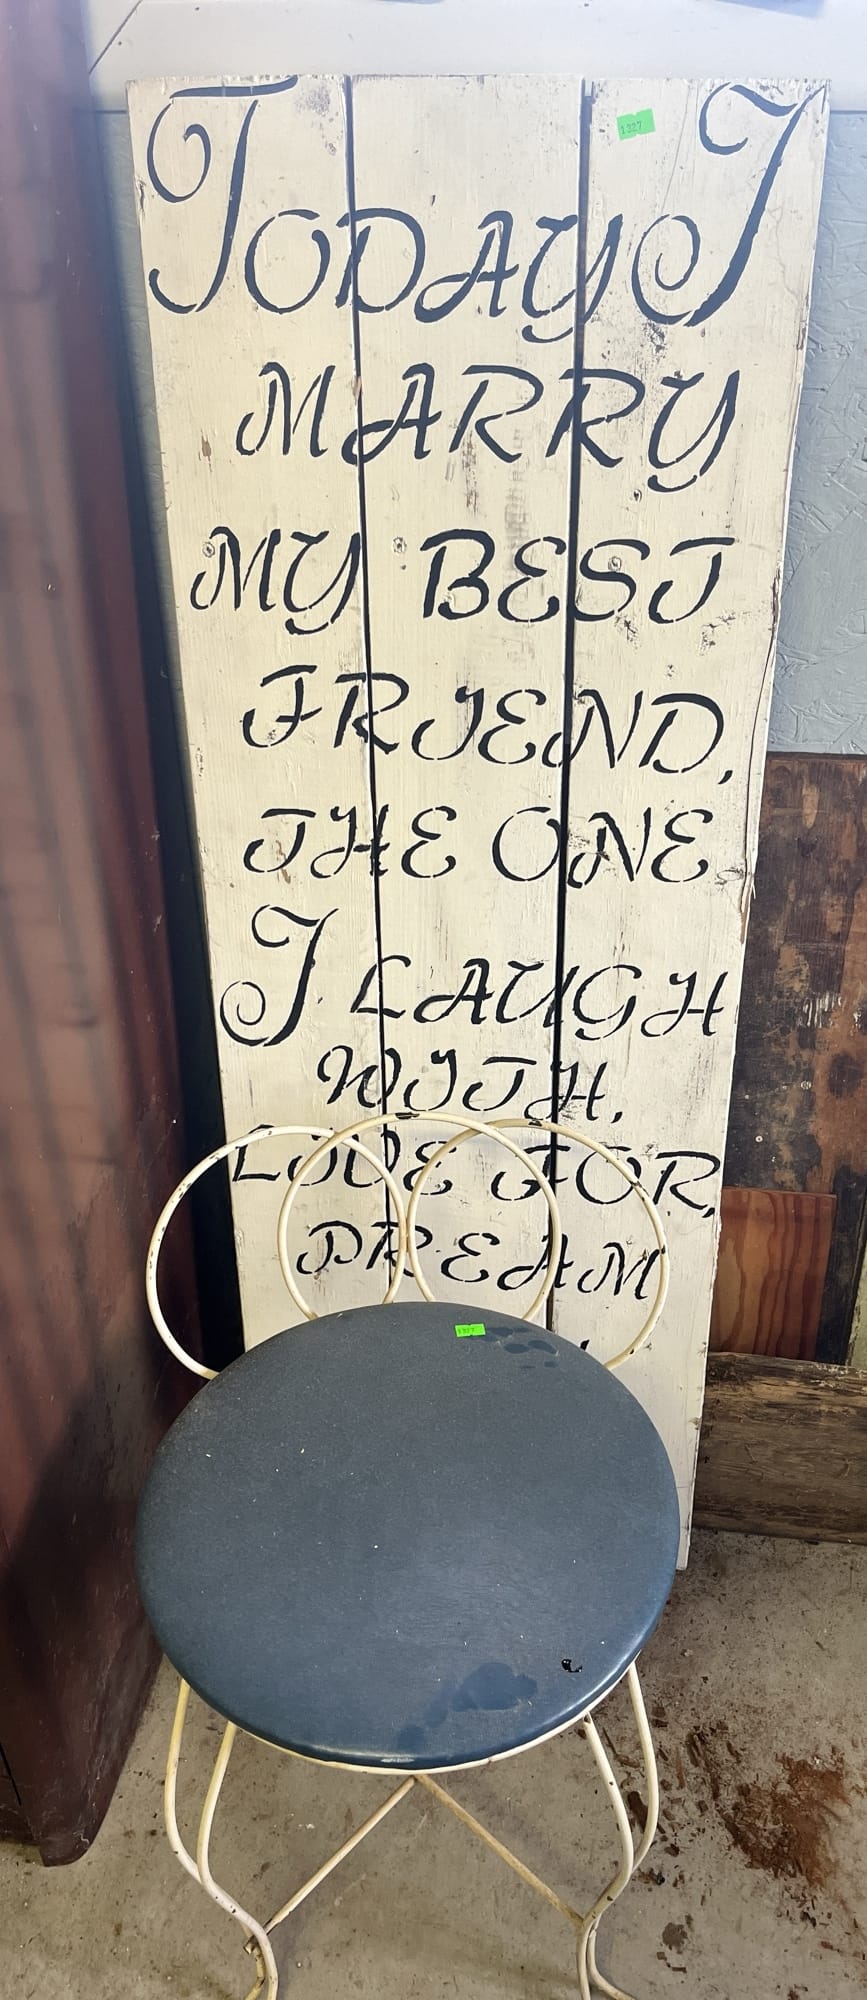 TODAY I
1327
MARRY
MY BEST
FRIEND,
THE ONE
I LAUGH
WITH,
LIVE FOR,
DREAM
1327